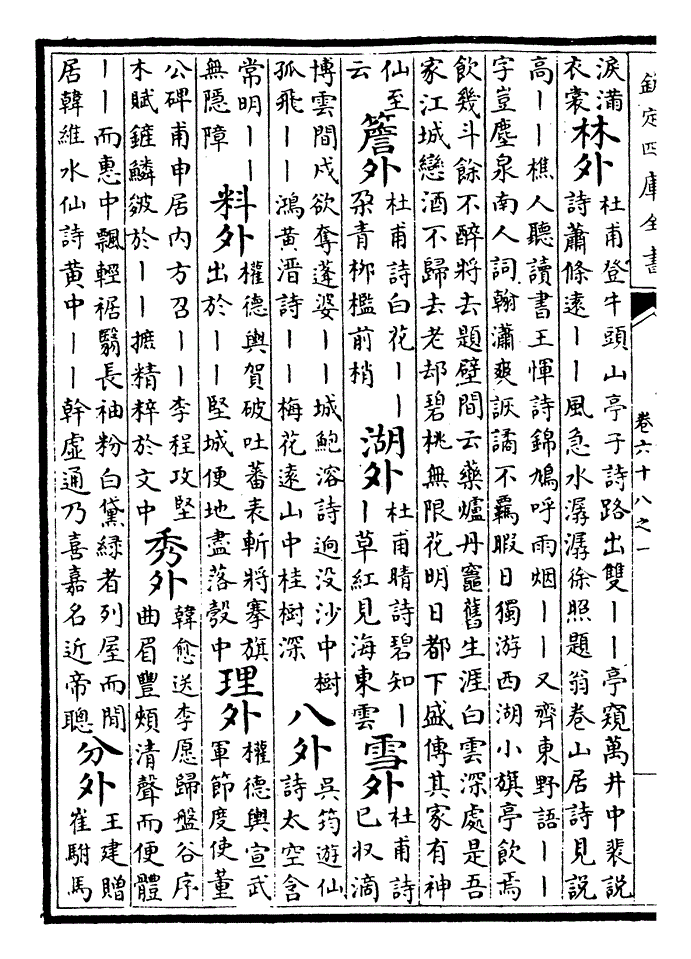 欽定四庫全書
卷六十八之一
淚滿
衣裳
林外
杜甫登牛頭山亭子詩路出雙——亭窺萬井中裴説
詩蕭條遠——風急水潺潺徐照題翁卷山居詩見説
高——樵人聽讀書王惲詩錦鳩呼雨烟——又齊東野語——
字豈塵泉南人詞翰瀟爽詼譎不羈暇日獨游西湖小旗亭飲焉
飲幾斗餘不醉將去題壁間云藥爐丹竈舊生涯白雲深處是吾
家江城戀酒不歸去老却碧桃無限花明日都下盛傳其家有神
仙至
云
簷外
杜甫詩白花——
朶青栁檻前梢
湖外
杜甫晴詩碧知—
—草紅見海東雲
雪外
杜甫詩
已收滴
博雲間戍欲奪蓬婆——城鮑溶詩逈没沙中樹
孤飛——鴻黄溍詩——梅花遠山中桂樹深
八外
吳筠遊仙
詩太空含
常明——
無隠障
料外
權德輿賀破吐蕃表斬將搴旗
出於——堅城便地盡落彀中
理外
權德輿宣武
軍節度使董
公碑甫申居内方召——李程攻堅
木賦鏙鱗皴於——摭精粹於文中
秀外
韓愈送李愿歸盤谷序
曲眉豐頰清聲而便體
——而惠中飄輕裾翳長袖粉白黛緑者列屋而閒
居韓維水仙詩黄中——幹虛通乃喜嘉名近帝聰
分外
王建贈
崔駙馬